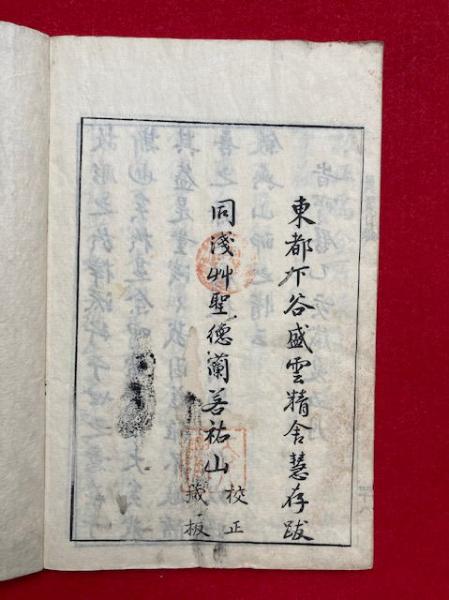 東都下谷盛雲精舎慧存跋
同淺艸聖德蘭若祐山
校正
蔵板